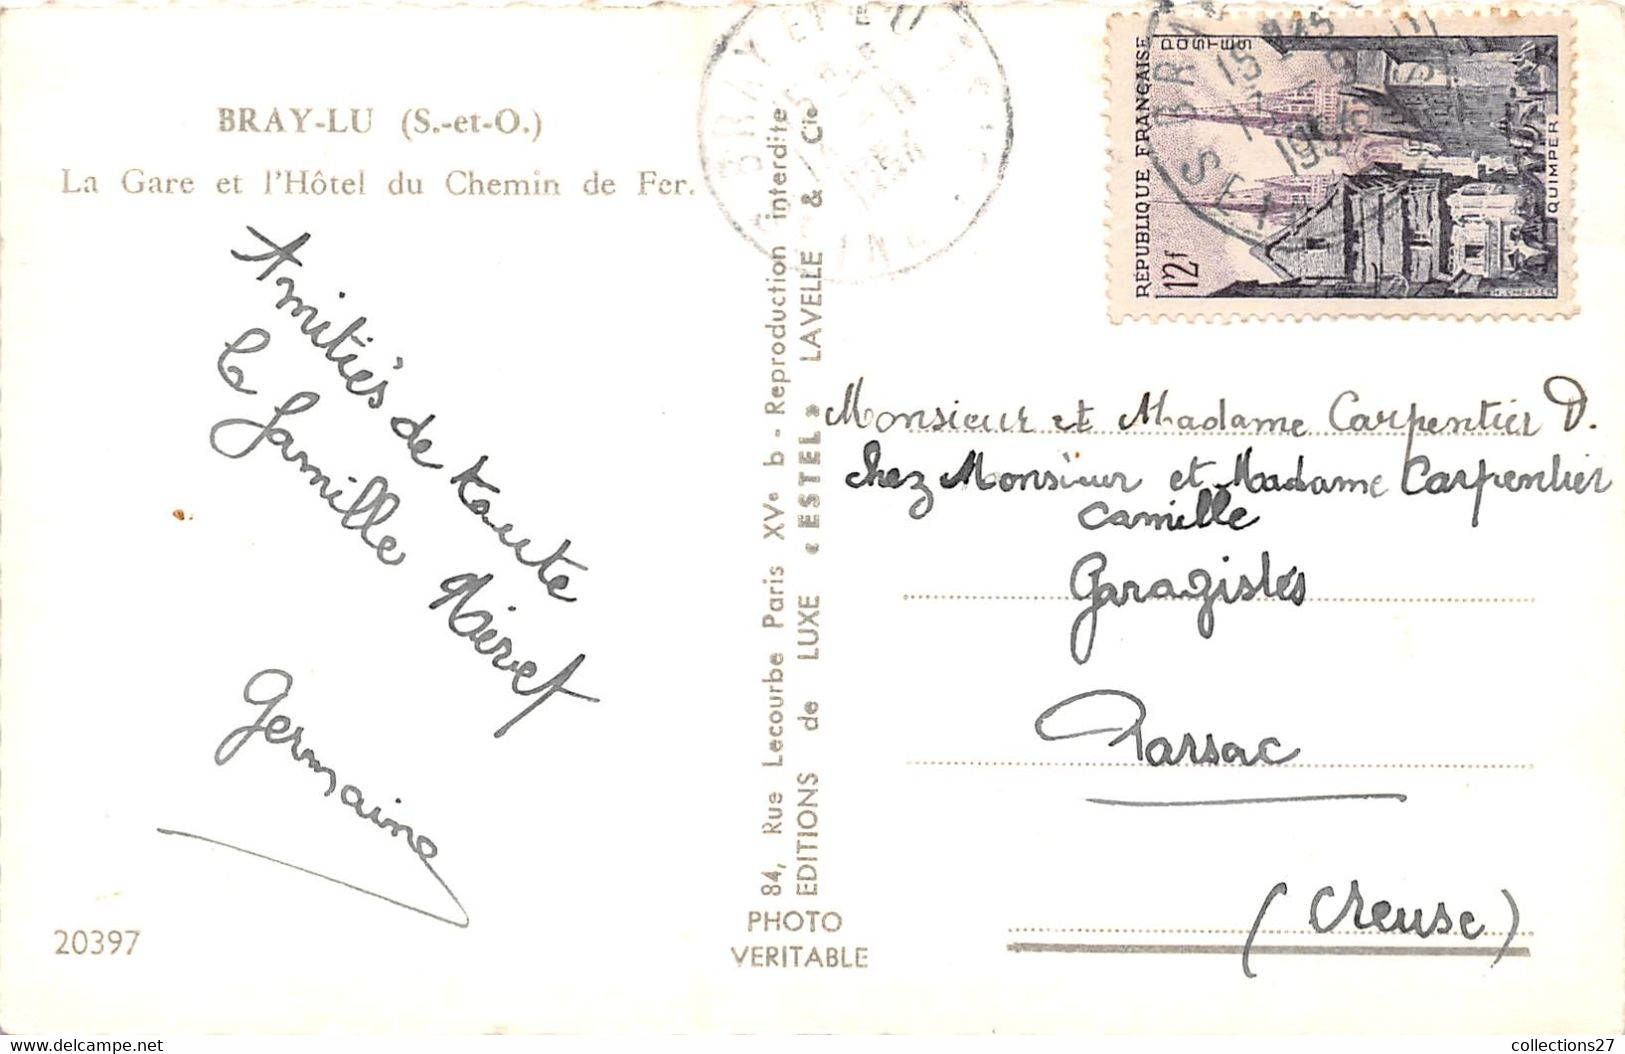 BRAY-LU (S.-et-O.)
La Gare et l'Hôtel du Chemin de Fer.
Amitiés de toute
la famille Néret
Germaine
20397
84, Rue Lecourbe Paris XVe b - Reproduction interdite
EDITIONS de LUXE « ESTEL » LAVELLE & Cie
PHOTO
VERITABLE
BRAY ET LU
RÉPUBLIQUE FRANÇAISE
POSTES
12f
QUIMPER
15 H45
Monsieur et Madame Carpentier D.
chez Monsieur et Madame Carpentier
Camille
Garagistes
Parsac
(Creuse)
collections27